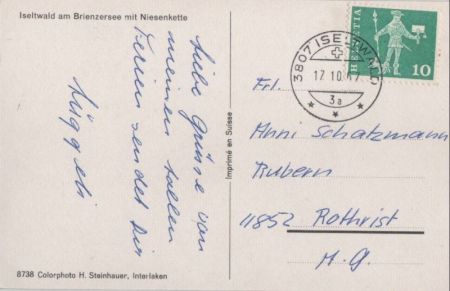 Iseltwald am Brienzersee mit Niesenkette
Liebe Grüsse von
meinen tollen
Ferien sendet Dir
8738 Colorphoto H. Steinhauer, Interlaken
Imprimé en Suisse
3807 ISELTWALD
17.10.
3a
HELVETIA
10
Frl.
Anni Schatzmann
Rubern
4852 Rothrist
A.G.